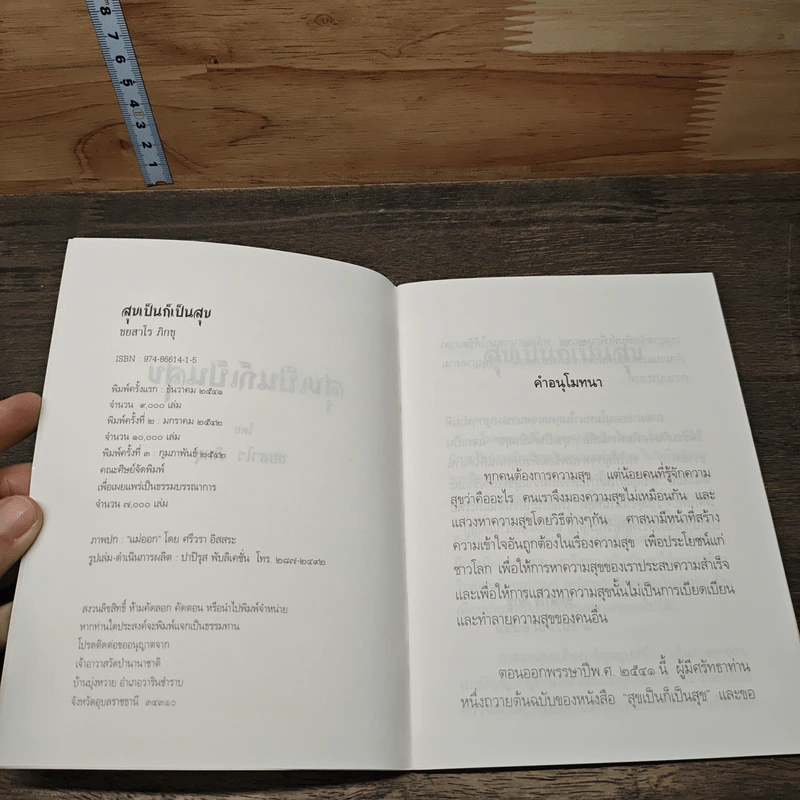 8
7
6
5
4
3
2
1
สุขเป็นก็เป็นสุข
ชยสาโร ภิกขุ
ISBN 974-86614-1-5
พิมพ์ครั้งแรก : ธันวาคม ๒๕๔๑
จำนวน ๙,๐๐๐ เล่ม
พิมพ์ครั้งที่ ๒ : มกราคม ๒๕๔๒
จำนวน ๑๐,๐๐๐ เล่ม
พิมพ์ครั้งที่ ๓ : กุมภาพันธ์ ๒๕๔๒
คณะศิษย์จัดพิมพ์
เพื่อเผยแพร่เป็นธรรมบรรณาการ
จำนวน ๗,๐๐๐ เล่ม
ภาพปก : "แม่ออก" โดย ศรีวรา อิสสระ
รูปเล่ม-ดำเนินการผลิต : ปาปิรุส พับลิเคชั่น โทร. ๒๘๗-๒๔๙๒
สงวนลิขสิทธิ์ ห้ามคัดลอก ตัดตอน หรือนำไปพิมพ์จำหน่าย
หากท่านใดประสงค์จะพิมพ์แจกเป็นธรรมทาน
โปรดติดต่อขออนุญาตจาก
เจ้าอาวาสวัดป่านานาชาติ
บ้านบุ่งหวาย อำเภอวารินชำราบ
จังหวัดอุบลราชธานี ๓๔๓๑๐
คำอนุโมทนา
ทุกคนต้องการความสุข แต่น้อยคนที่รู้จักความ
สุขว่าคืออะไร คนเราจึงมองความสุขไม่เหมือนกัน และ
แสวงหาความสุขโดยวิธีต่างๆกัน ศาสนามีหน้าที่สร้าง
ความเข้าใจอันถูกต้องในเรื่องความสุข เพื่อประโยชน์แก่
ชาวโลก เพื่อให้การหาความสุขของเราประสบความสำเร็จ
และเพื่อให้การแสวงหาความสุขนั้นไม่เป็นการเบียดเบียน
และทำลายความสุขของคนอื่น
ตอนออกพรรษาปีพ.ศ. ๒๕๔๑ นี้ ผู้มีศรัทธาท่าน
หนึ่งถวายต้นฉบับของหนังสือ "สุขเป็นก็เป็นสุข" และขอ